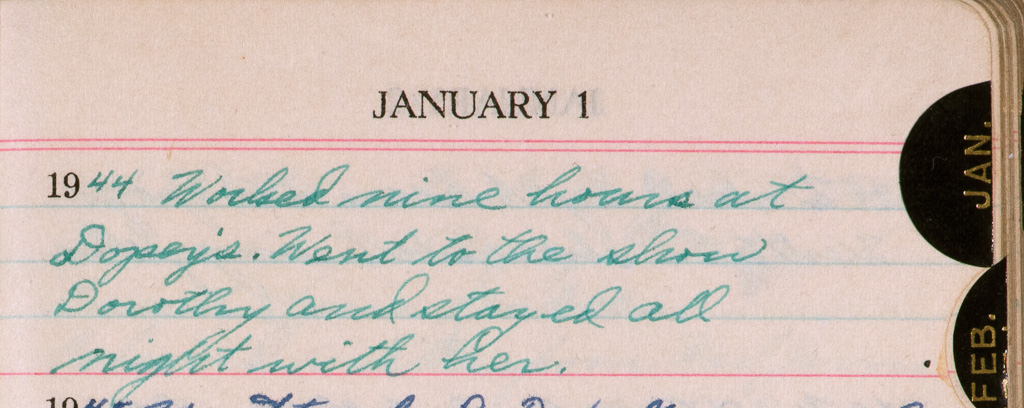 JANUARY 1
1944 Worked nine hours at
Dopey's. Went to the show
Dorothy and stayed all
night with her.
1945
JAN.
FEB.